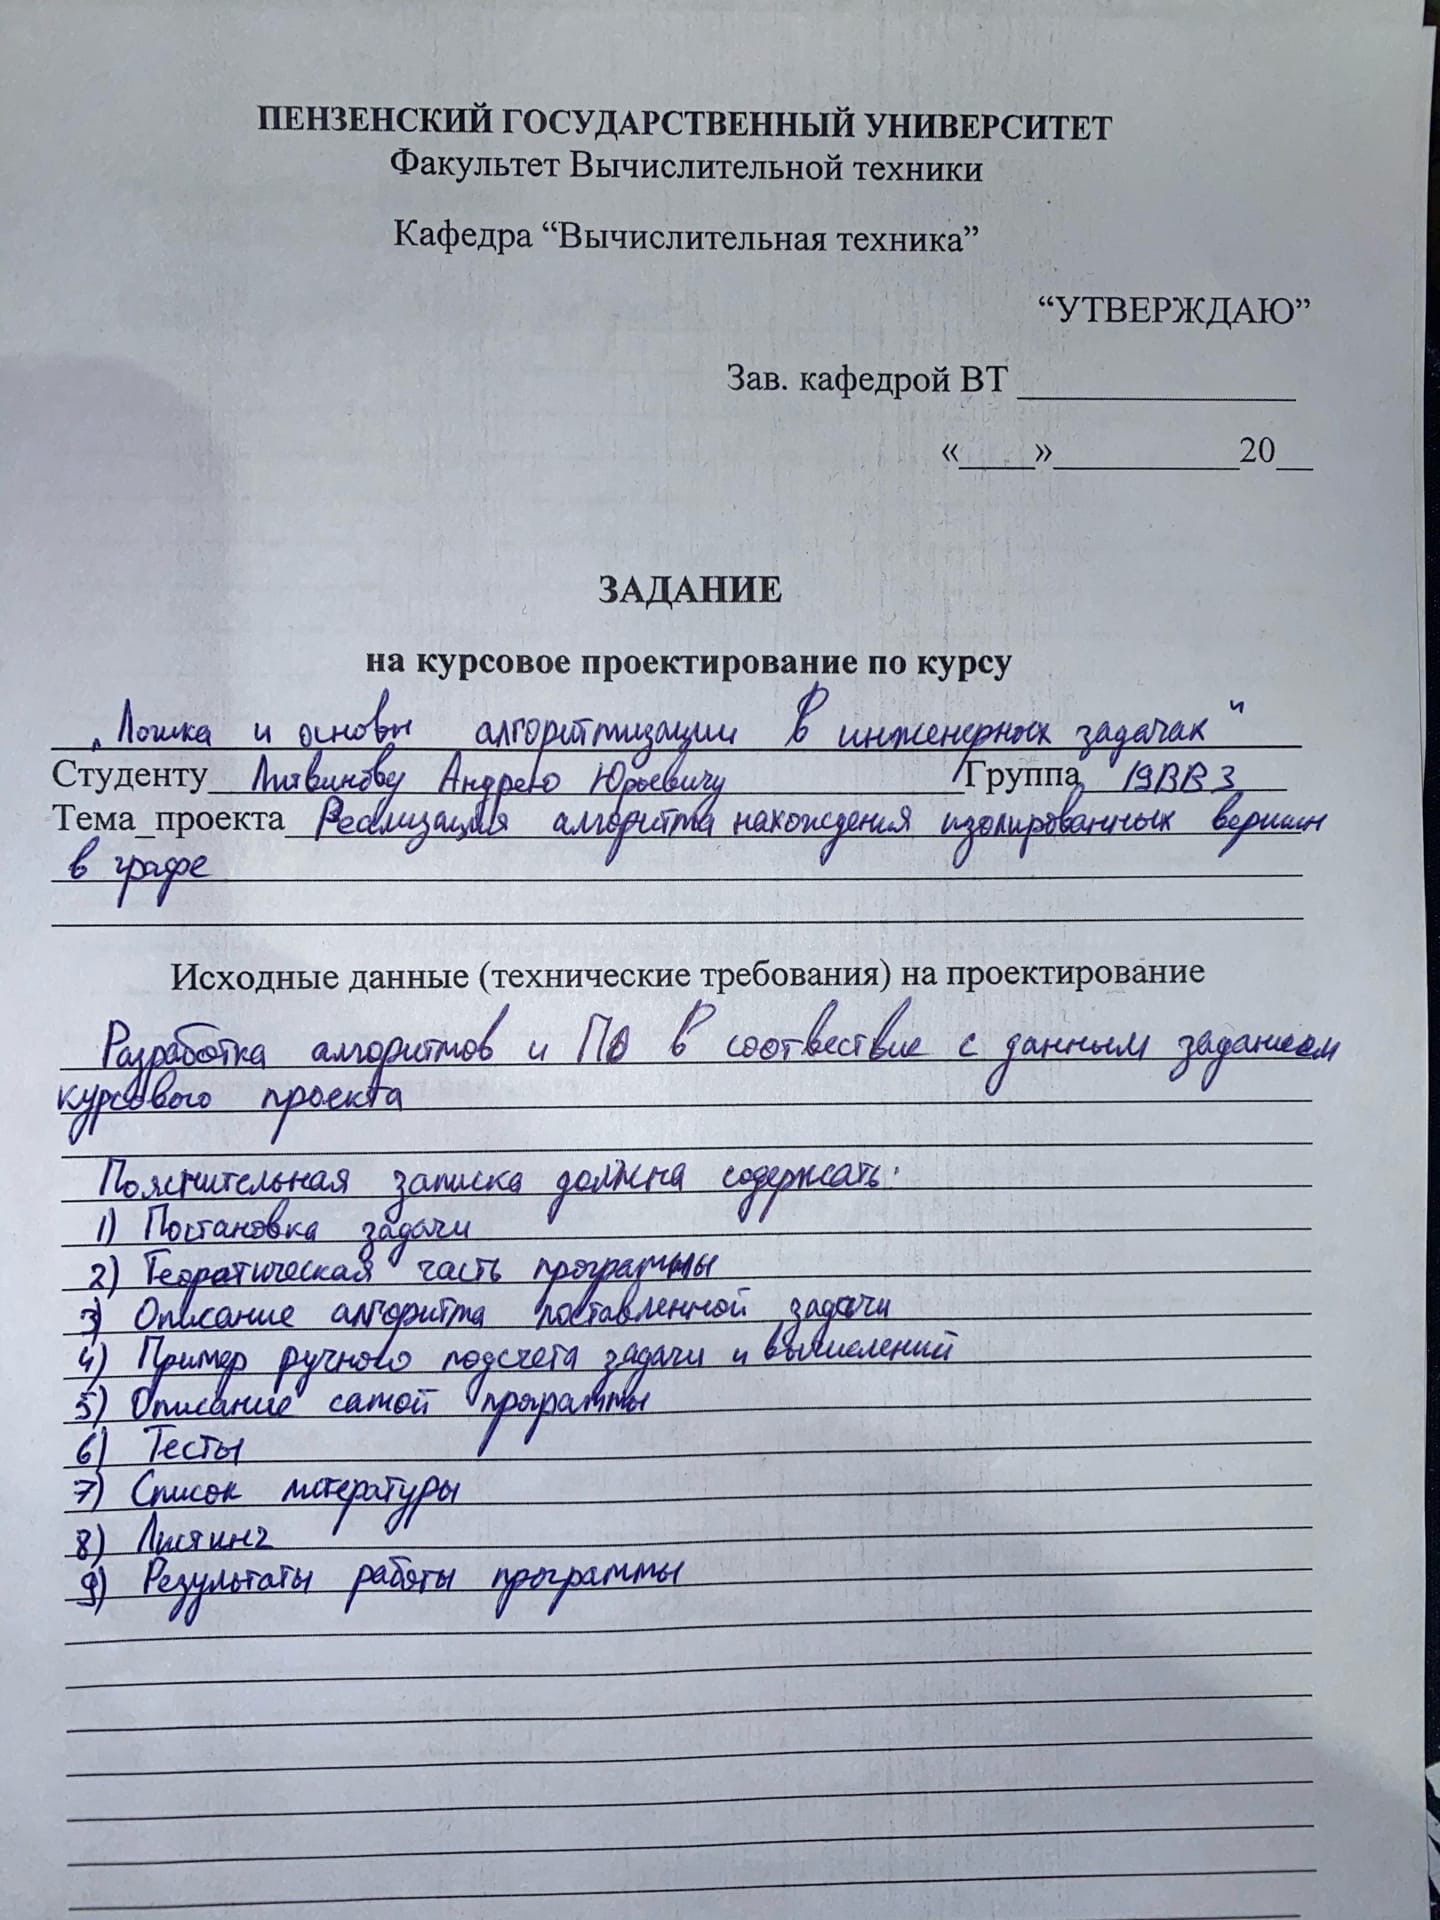 ПЕНЗЕНСКИЙ ГОСУДАРСТВЕННЫЙ УНИВЕРСИТЕТ
Факультет Вычислительной техники
Кафедра “Вычислительная техника”
“УТВЕРЖДАЮ”
Зав. кафедрой ВТ _______________
«____»__________20__
ЗАДАНИЕ
на курсовое проектирование по курсу
„Логика и основы алгоритмизации в инженерных задачах“
Студенту Литвинову Андрею Юрьевичу Группа 19ВВ3
Тема_проекта Реализация алгоритма нахождения изолированных вершин
в графе
Исходные данные (технические требования) на проектирование
Разработка алгоритмов и ПО в соотвествие с данным заданием
курсового проекта
Пояснительная записка должна содержать:
1) Постановка задачи
2) Теоратическая часть программы
3) Описание алгоритма поставленной задачи
4) Пример ручного подсчета задачи и вычислений
5) Описание самой программы
6) Тесты
7) Список литературы
8) Листинг
9) Результаты работы программы